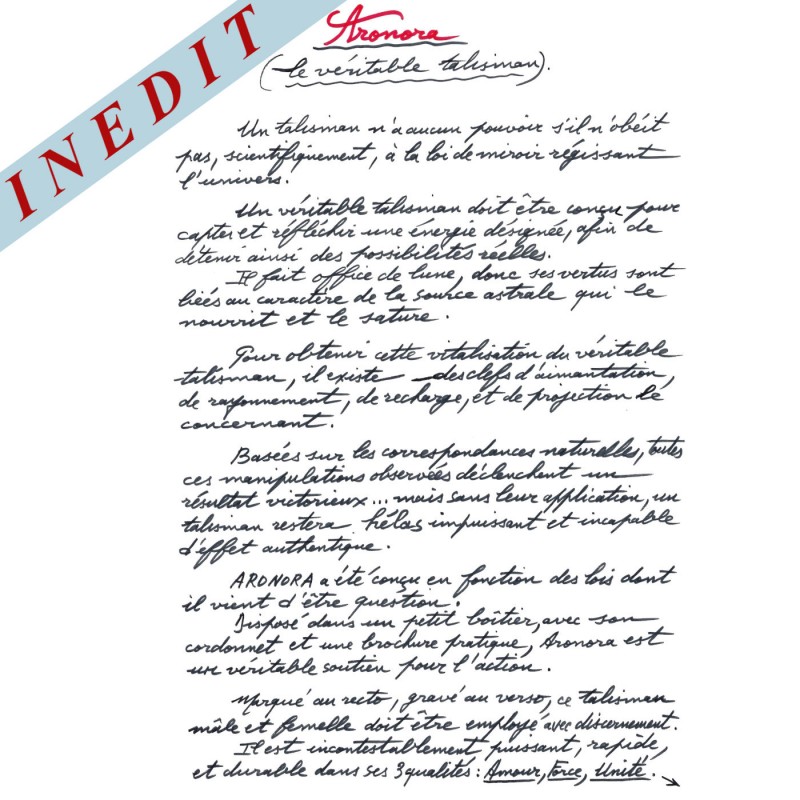 INEDIT
Aronora
(le véritable talisman).
Un talisman n'a aucun pouvoir s'il n'obéit
pas, scientifiquement, à la loi de miroir régissant
l'univers.
Un véritable talisman doit être conçu pour
capter et réfléchir une énergie désignée, afin de
détenir ainsi des possibilités réelles.
Il fait office de lune, donc ses vertus sont
liées au caractère de la source astrale qui le
nourrit et le sature.
Pour obtenir cette vitalisation du véritable
talisman, il existe des clefs d'aimantation,
de rayonnement, de recharge, et de projection le
concernant.
Basées sur les correspondances naturelles, toutes
ces manipulations observées déclenchent un
résultat victorieux... mais sans leur application, un
talisman restera hélas impuissant et incapable
d'effet authentique.
ARONORA a été conçu en fonction des lois dont
il vient d'être question.
Disposé dans un petit boîtier, avec son
cordonnet et une brochure pratique, Aronora est
un véritable soutien pour l'action.
Marqué au recto, gravé au verso, ce talisman
mâle et femelle doit être employé avec discernement.
Il est incontestablement puissant, rapide,
et durable dans ses 3 qualités : Amour, Force, Unité.